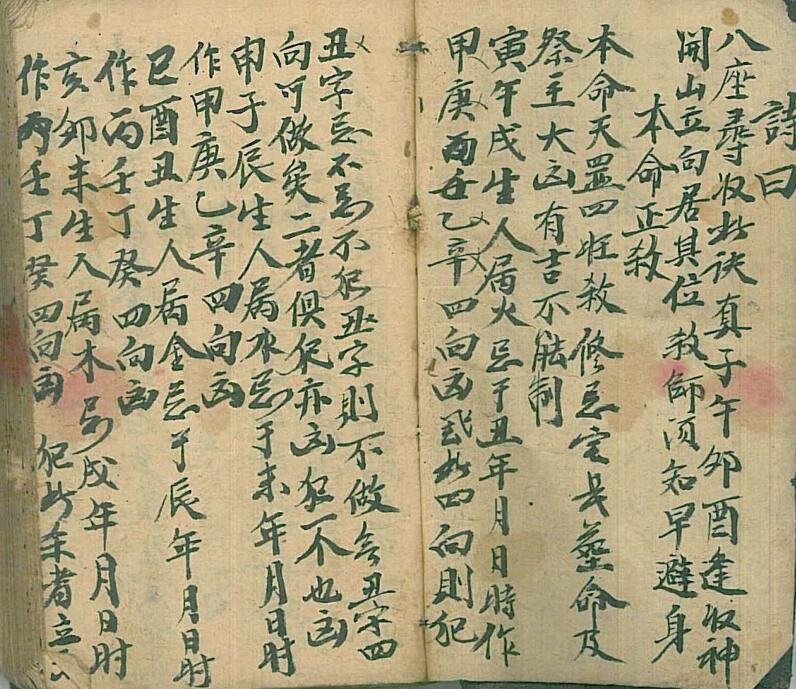 詩曰
八座尋收此訣真子午卯酉逢收神
開山立向居其位教師須知早避身
本命正殺
本命天罡四旺殺修忌宅長塟命及
祭主大凶有吉不能制
寅午戌生人屬火忌于丑年月日時作
甲庚丙壬乙辛四向凶我此四向則犯
丑字忌不為不犯丑字則不做令丑字四
向可做矣二者俱犯亦凶犯一不也凶
申子辰生人屬水忌于未年月日时
作甲庚乙辛四向凶
巳酉丑生人屬金忌于辰年月日时
作丙壬丁癸四向凶
亥卯未生人屬木忌戌年月日时
作丙壬丁癸四向凶 犯此年者立